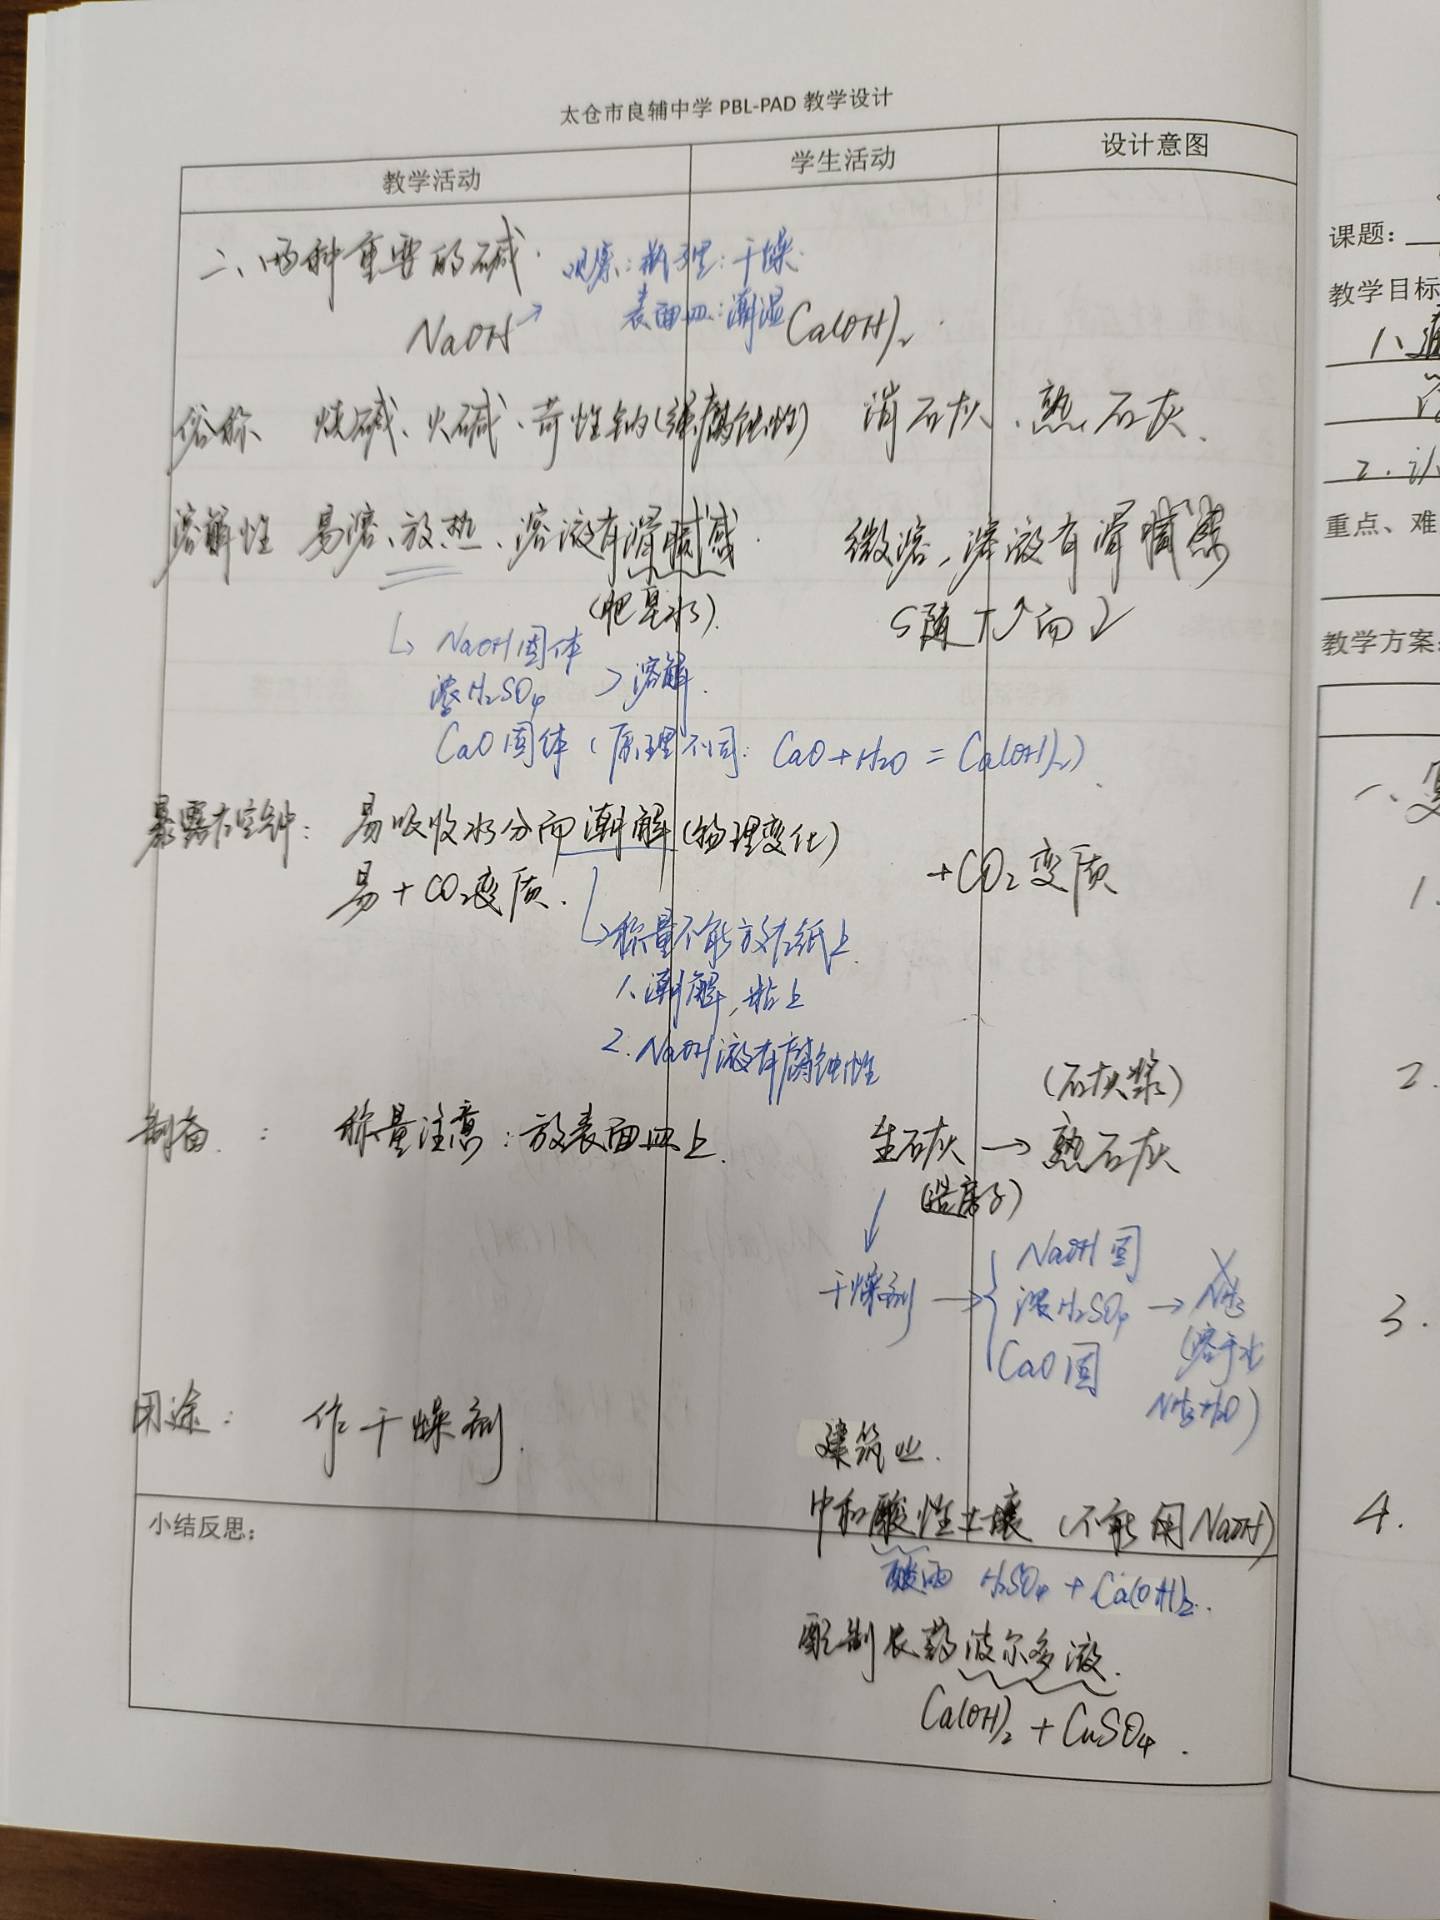 太仓市良辅中学 PBL-PAD 教学设计
教学活动 学生活动 设计意图
二、两种重要的碱. 观察:瓶子里:干燥.
表面皿:潮湿
NaOH → Ca(OH)₂
俗称 烧碱、火碱、苛性钠(强腐蚀性) 消石灰、熟石灰.
溶解性 易溶、放热、溶液有滑腻感. 微溶,溶液有滑腻感
(肥皂水). S随T↑而↓
↳ NaOH固体
浓H₂SO₄ > 溶解.
CaO固体(原理不同: CaO+H₂O = Ca(OH)₂)
暴露在空气中: 易吸收水分而潮解(物理变化)
易+CO₂变质. +CO₂变质
↳称量不能放在纸上.
1.潮解,粘上
2.NaOH液有腐蚀性
(石灰浆)
制备: 称量注意:放表面皿上. 生石灰 → 熟石灰
↓
干燥剂 → { NaOH固
浓H₂SO₄ → NH₃
CaO固
(溶于水
NH₃·H₂O)
用途: 作干燥剂.
建筑业.
中和酸性土壤(不能用NaOH)
小结反思:
酸雨 H₂SO₄ + Ca(OH)₂..
配制农药波尔多液.
Ca(OH)₂ + CuSO₄.
课题:
教学目标
1、
2.认
重点、难
教学方案:
一、复
1.
2.
3.
4.